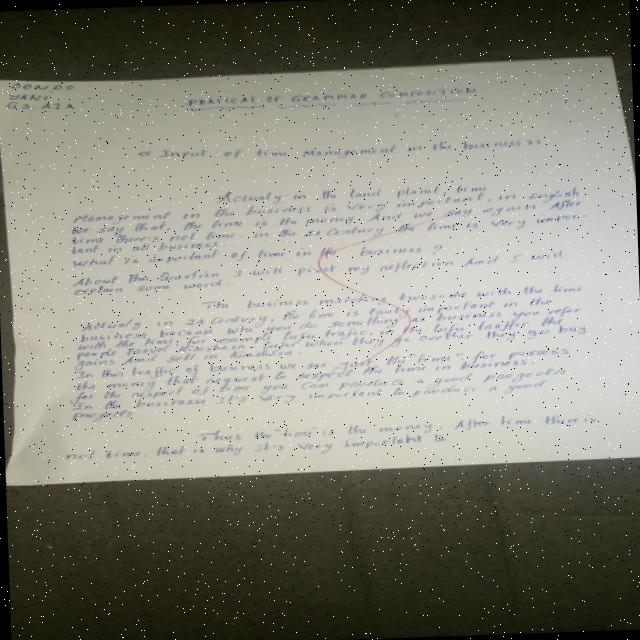 DONDO
G3 A2A
PRATICAL OF GRAMMAR COMPOSITION
<< Input of time Management in the business >>
Actualy in the land planet time
Management in the business is very important, in english
we say that, the time is the money. And we say again After
time there's not time. in the 21 Century the time is very impor-
tant in the business.
What is important of time in the business ?
About this Question I will my reflection And I will
explain some word.
The business with the time
Actualy in 21 Century, the time is that important in the
business, because who you do something in business you refer
with the time, for example fufu traffic, in fufu traffic the
people when they go buy
and sell in Kinshasa.
In this traffic of business we say "just the time" for possess
the money that request to the time in business.
for the respect of time you can produce a good projects
In the business It's very important to produce a good
projects.
Thus the time is the money. After time there is
not time, that is why It's very important